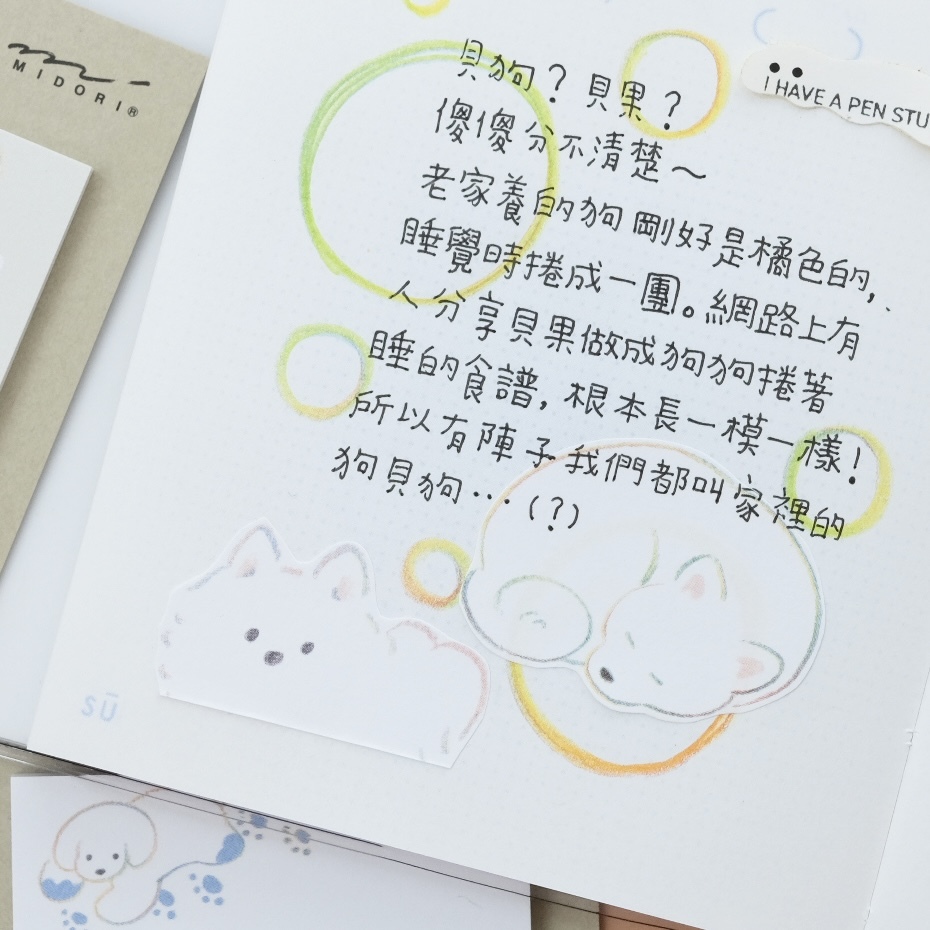 MIDORI®
I HAVE A PEN STU
貝狗？貝果？
傻傻分不清楚～
老家養的狗剛好是橘色的，
睡覺時捲成一團。網路上有
人分享貝果做成狗狗捲著
睡的食譜，根本長一模一樣！
所以有陣子我們都叫家裡的
狗貝狗…（？）
sū